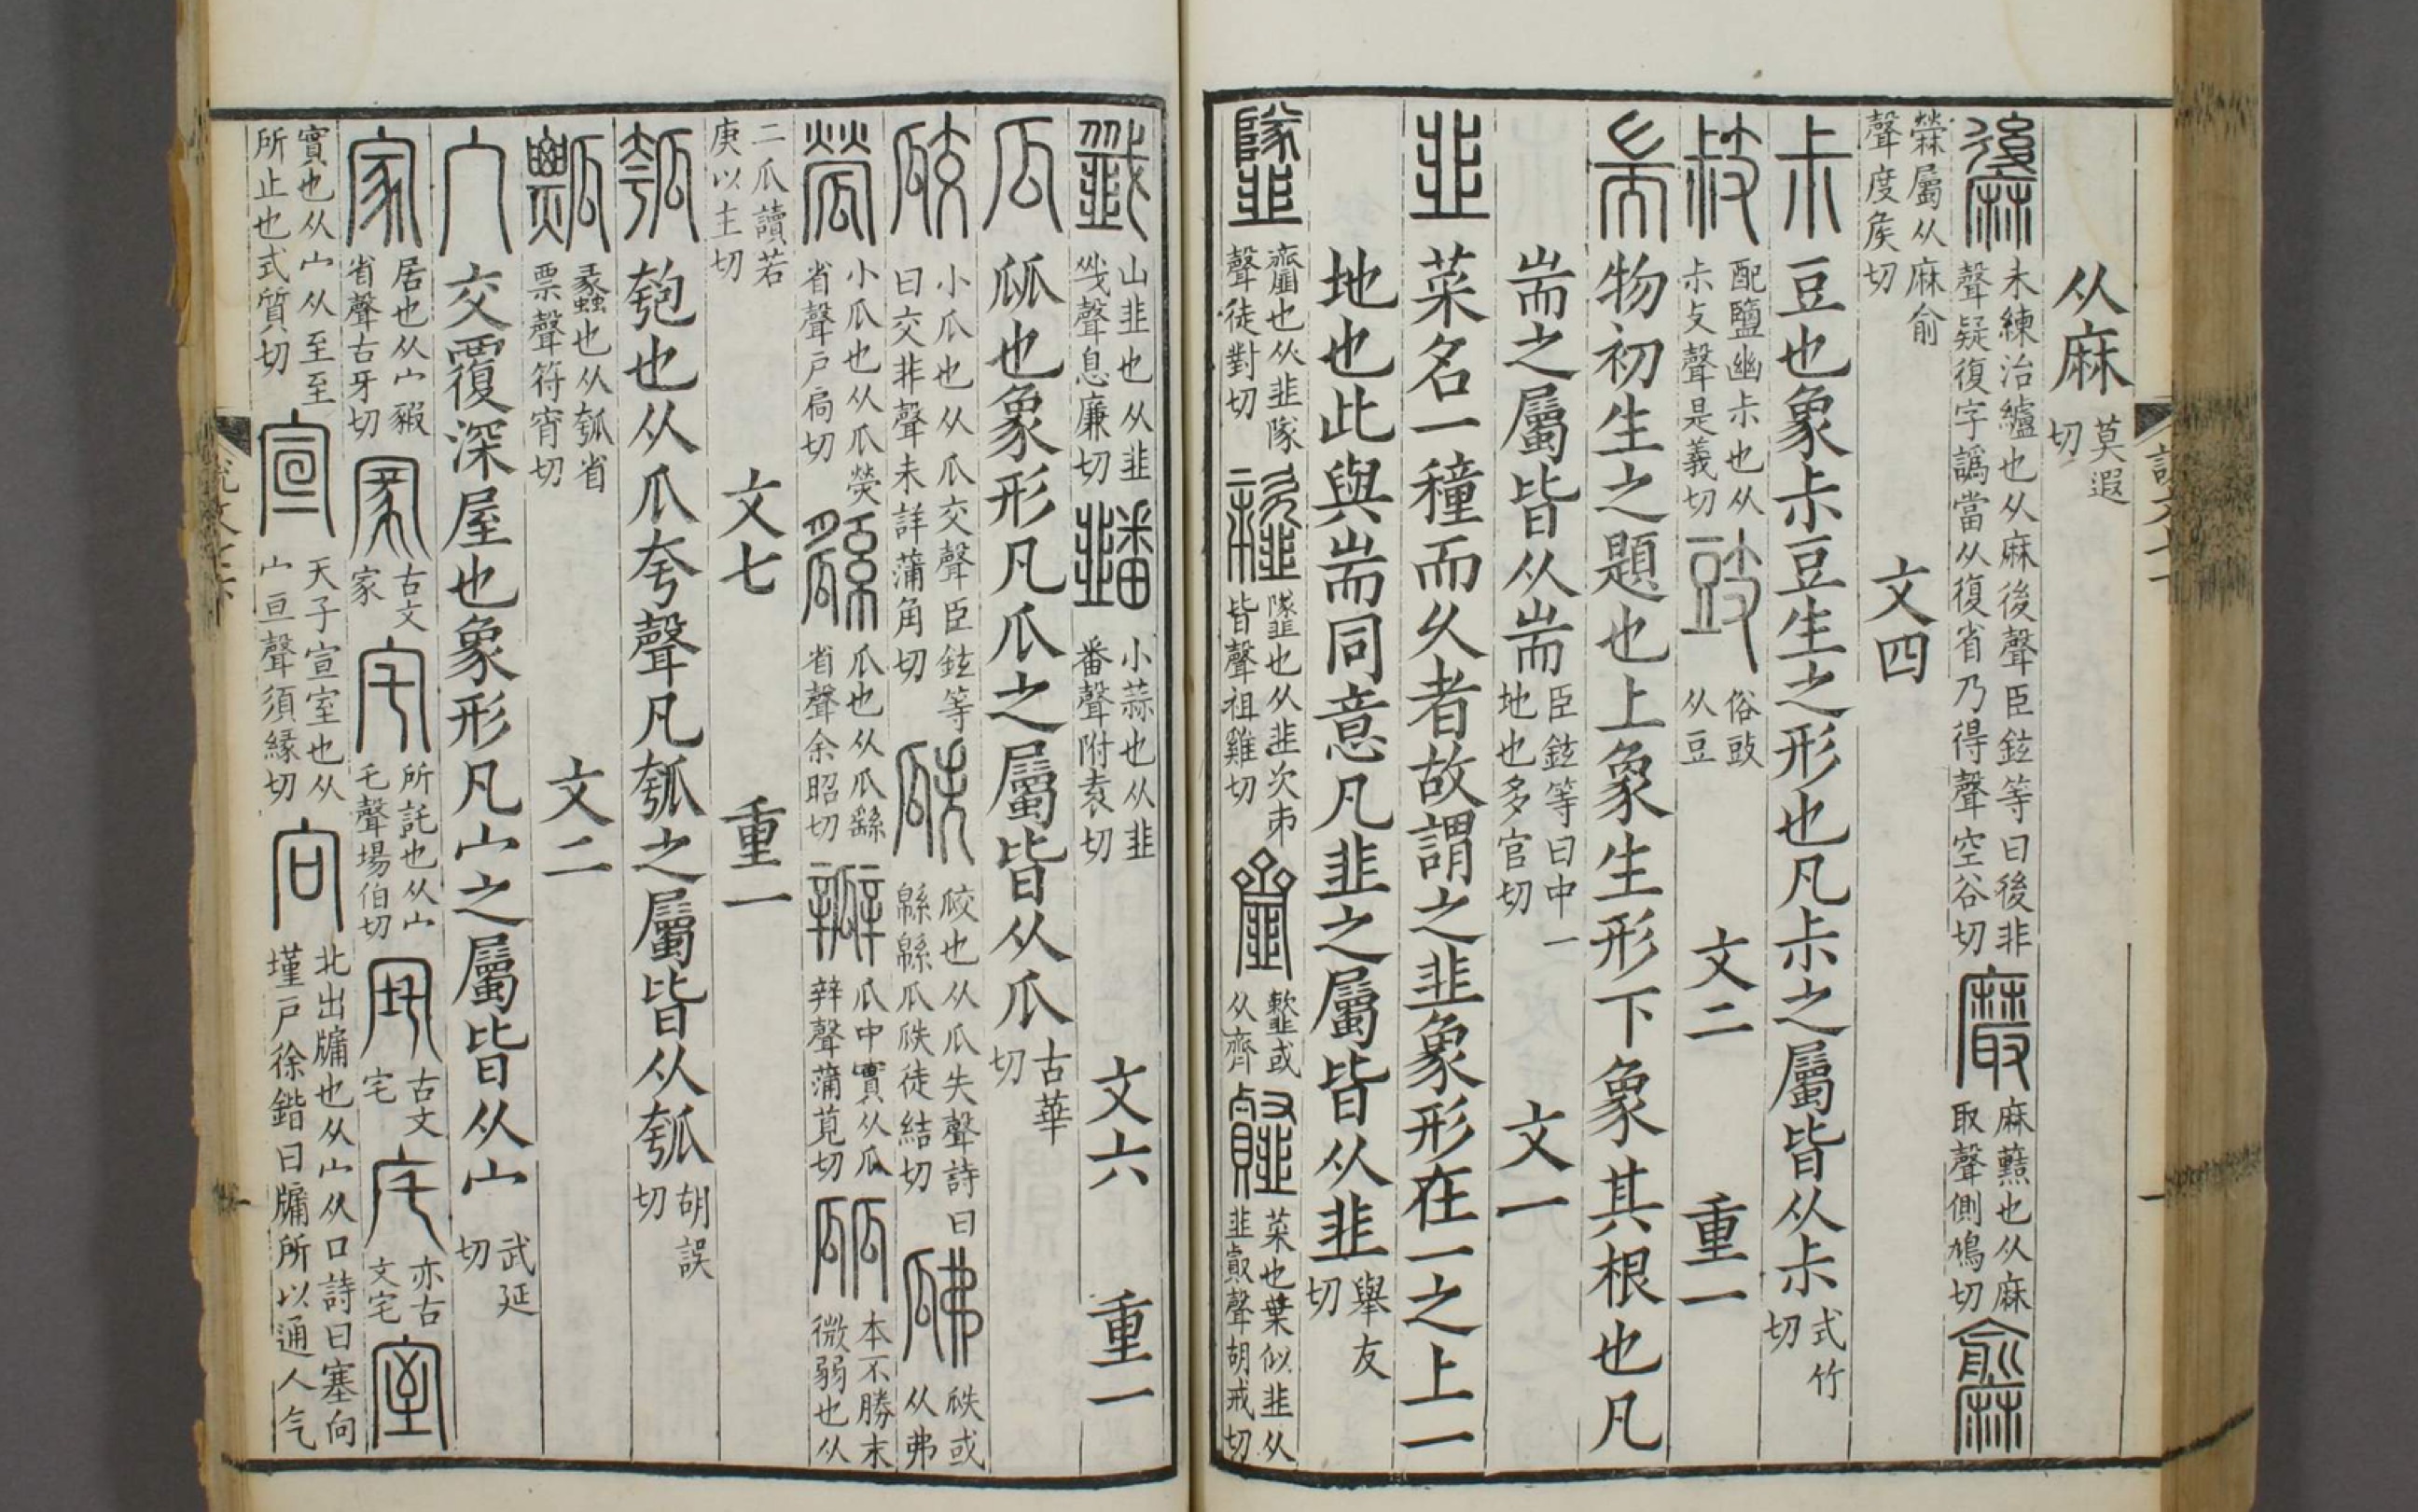 从麻莫遐切
𪎭未練治纑也从麻後聲臣鉉等曰後非聲疑復字譌當从復省乃得聲空谷切 𪎮麻藍也从麻取聲側鳩切 𪎰
檾屬从麻俞聲度矦切 文四
尗豆也象尗豆生之形也凡尗之屬皆从尗式竹切
𢻃配鹽幽尗也从尗攴聲是義切 豉俗𢻃从豆 文二 重一
耑物初生之題也上象生形下象其根也凡
耑之屬皆从耑臣鉉等曰中一地也多官切 文一
韭菜名一穜而久者故謂之韭象形在一之上一
地也此與耑同意凡韭之屬皆从韭舉友切
䪤䪢也从韭隊聲徒對切 䪡䪤也从韭次𠂔皆聲祖雞切 䪢䪡或从齊 䪥菜也葉似韭从韭㕡聲胡戒切
韱山韭也从韭㦰聲息廉切 䪤小蒜也从韭番聲附袁切 文六 重一
瓜㼌也象形凡瓜之屬皆从瓜古華切
㼎小瓜也从瓜交聲臣鉉等曰交非聲未詳蒲角切 瓞㼎也从瓜失聲詩曰緜緜瓜瓞徒結切 𤬏瓞或从弗
𤬐小瓜也从瓜熒省聲戶扃切 䌛瓜也从瓜繇省聲余昭切 瓣瓜中實从瓜辡聲蒲莧切 㼌本不勝末微弱也从
二瓜讀若庾以主切 文七 重一
瓠匏也从瓜夸聲凡瓠之屬皆从瓠胡誤切
瓢蠡也从瓠省㶾聲符宵切 文二
宀交覆深屋也象形凡宀之屬皆从宀武延切
家居也从宀豭省聲古牙切 𠖔古文家 宅所託也从宀乇聲場伯切 㡯古文宅 㡯亦古文宅 室
實也从宀从至至所止也式質切 宣天子宣室也从宀亘聲須緣切 向北出牖也从宀从口詩曰塞向墐戶徐鍇曰牖所以通人气